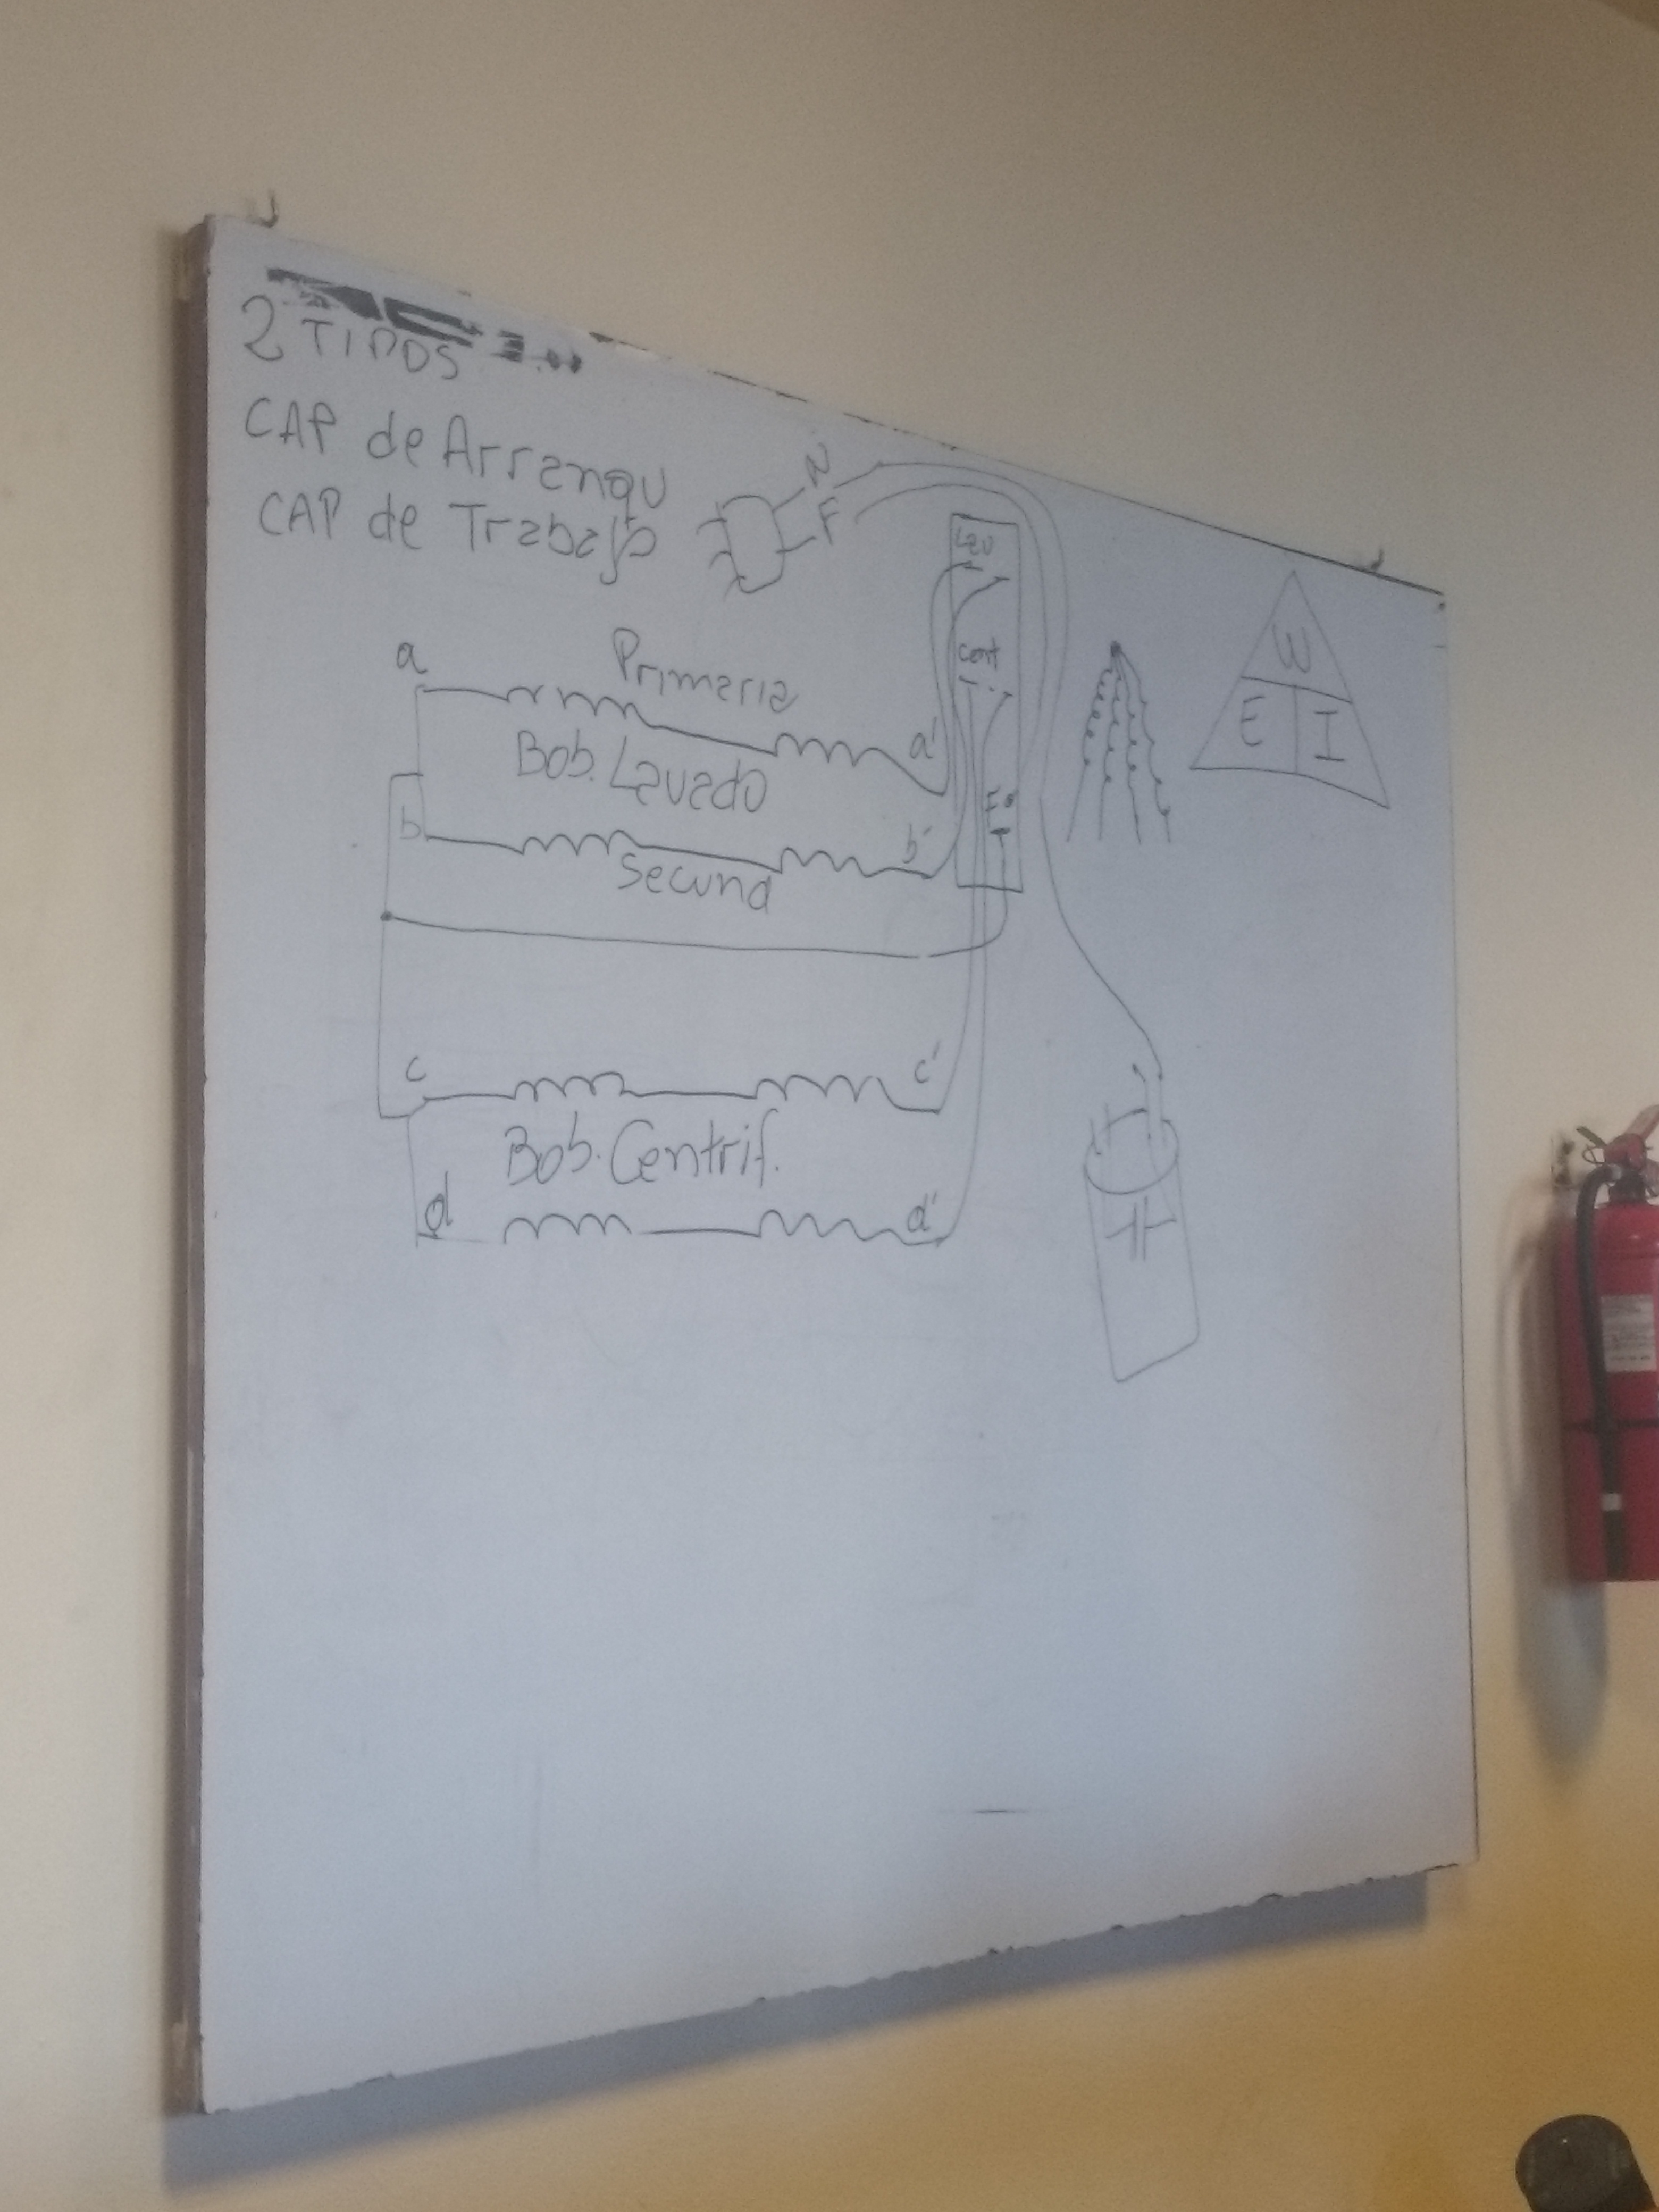 2 TIPOS
CAP de Arranqu
CAP de Trabajo
N
F
Lav
Cent
a
Primaria
a'
Bob. Lavado
b
b'
Secund
c
c'
Bob. Centrif.
d
d'
W
E I